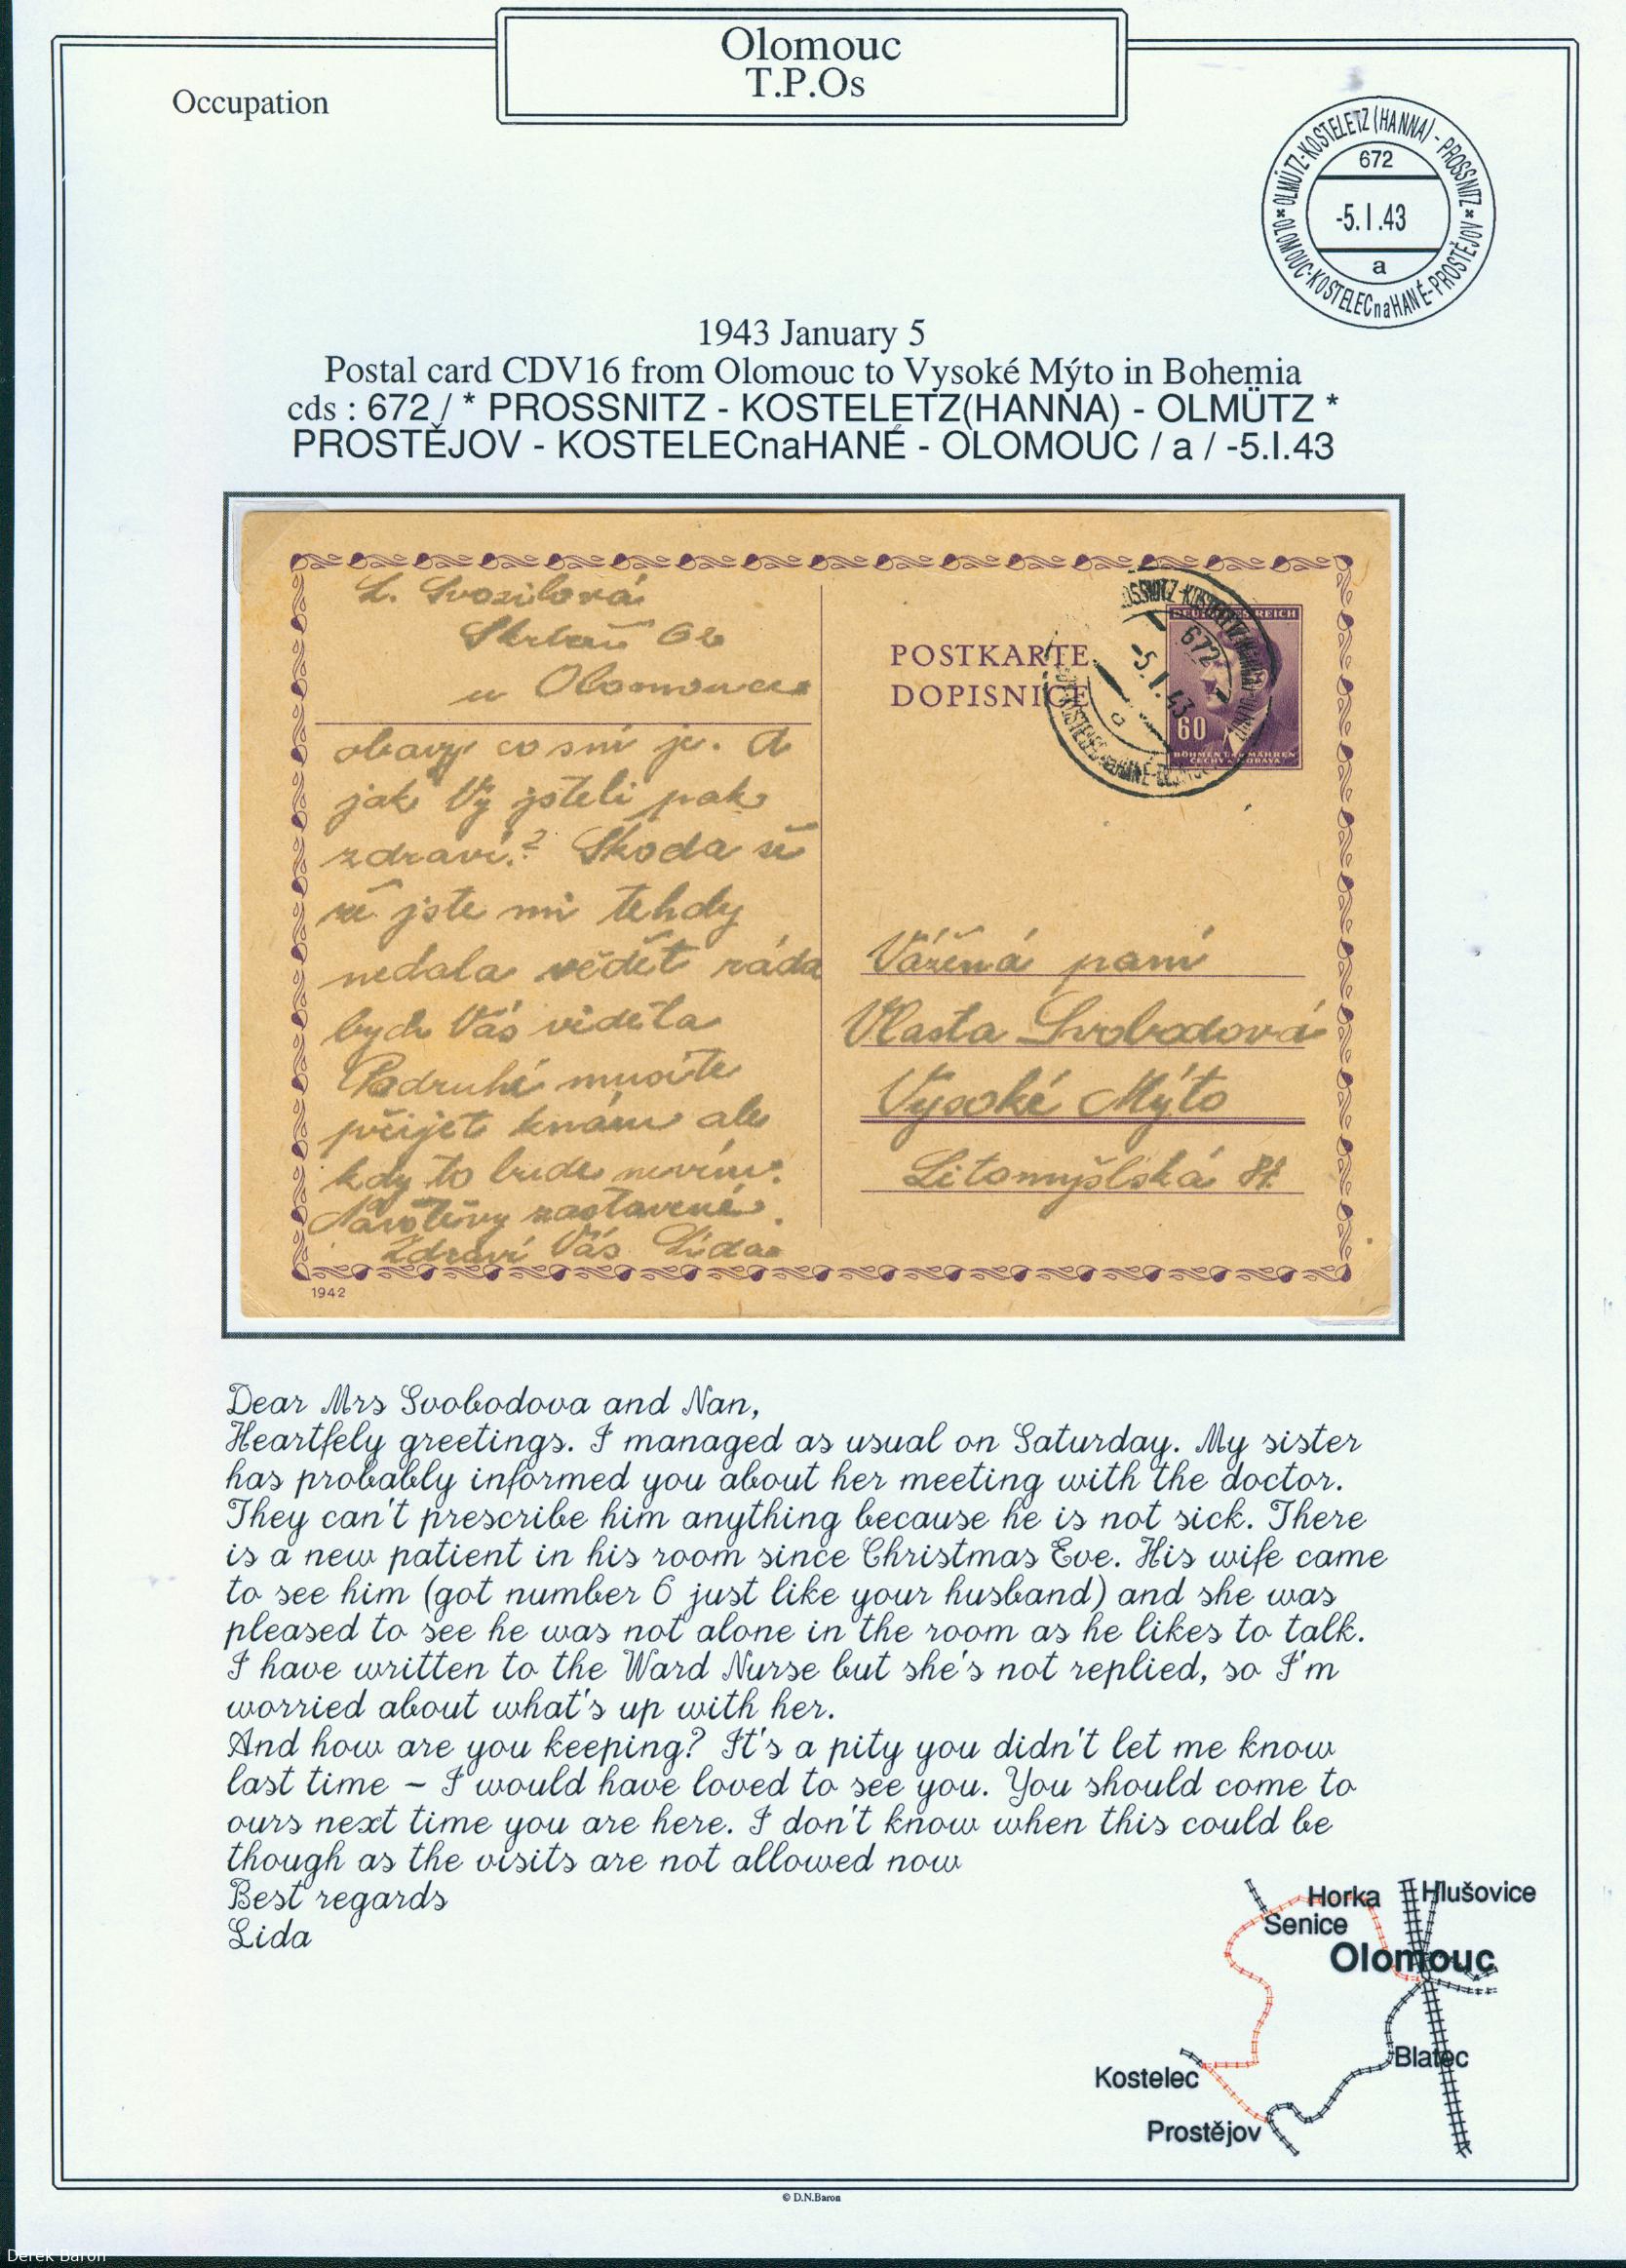 Olomouc
T.P.Os
Occupation
* OLMÜTZ-KOSTELETZ (HANNA) - PROSSNITZ *
672
-5.I.43
a
OLOMOUC-KOSTELECnaHANÉ-PROSTĚJOV
1943 January 5
Postal card CDV16 from Olomouc to Vysoké Mýto in Bohemia
cds : 672 / * PROSSNITZ - KOSTELETZ(HANNA) - OLMÜTZ *
PROSTĚJOV - KOSTELECnaHANÉ - OLOMOUC / a / -5.I.43
L. Svozilová
62
u Olomouce
obavy co sní je. A
jak Vy jsteli pak
zdraví? Škoda
že jste mi tehdy
nedala vědět ráda
bych Vás viděla
Podruhé musíte
přijet knám ale
kdy to bude nevím.
Návštěvy zastavené.
Zdraví Vás Lída
1942
POSTKARTE
DOPISNICE
672
-5.I.43
a
60
BÖHMEN UND MÄHREN
ČECHY A MORAVA
Vážená paní
Vlasta Svobodová
Vysoké Mýto
Litomyšlská
Dear Mrs Svobodova and Nan,
Heartfely greetings. I managed as usual on Saturday. My sister
has probably informed you about her meeting with the doctor.
They can't prescribe him anything because he is not sick. There
is a new patient in his room since Christmas Eve. His wife came
to see him (got number 6 just like your husband) and she was
pleased to see he was not alone in the room as he likes to talk.
I have written to the Ward Nurse but she's not replied, so I'm
worried about what's up with her.
And how are you keeping? It's a pity you didn't let me know
last time - I would have loved to see you. You should come to
ours next time you are here. I don't know when this could be
though as the visits are not allowed now
Best regards
Lida
Horka
Hlušovice
Senice
Olomouc
Blatec
Kostelec
Prostějov
© D.N.Baron
Derek Baron